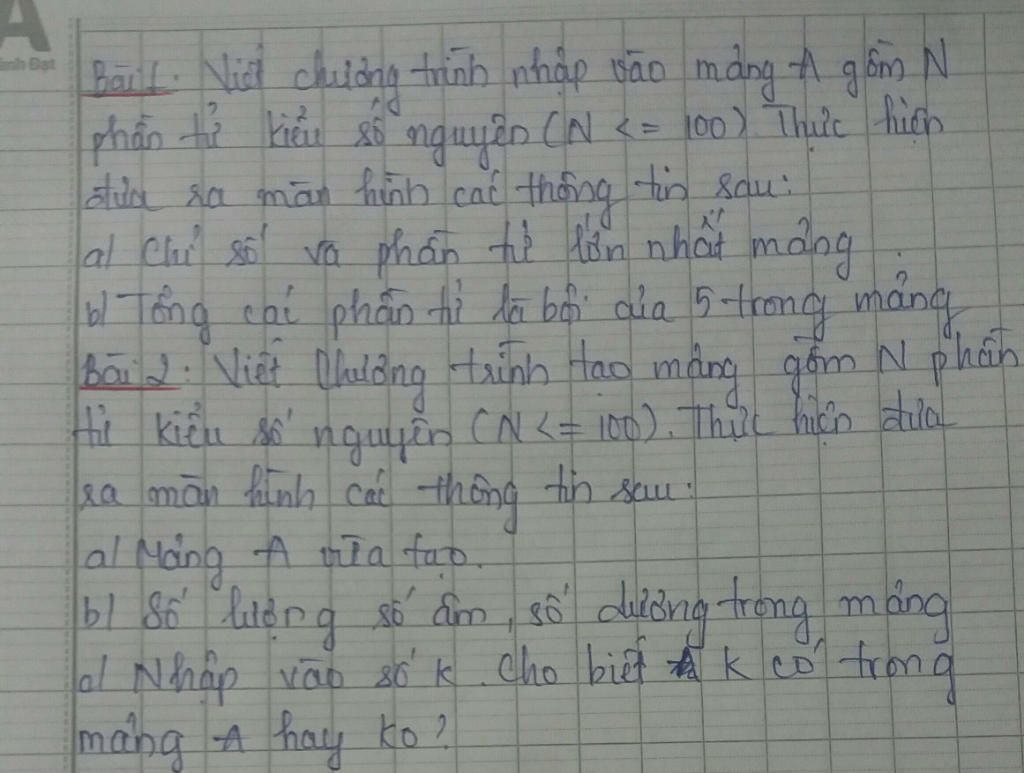 A
ành Đạt
Bài 1. Viết chương trình nhập vào mảng A gồm N
phần tử kiểu số nguyên (N <= 100). Thực hiện
đưa ra màn hình các thông tin sau:
a/ Chỉ số và phần tử lớn nhất mảng.
b/ Tổng các phần tử là bội của 5 trong mảng
Bài 2: Viết Chương trình tạo mảng gồm N phần
tử kiểu số nguyên (N <= 100). Thực hiện đưa
ra màn hình các thông tin sau:
a/ Mảng A vừa tạo.
b/ Số lượng số âm, số dương trong mảng
c/ Nhập vào số k. Cho biết k có trong
mảng A hay ko?